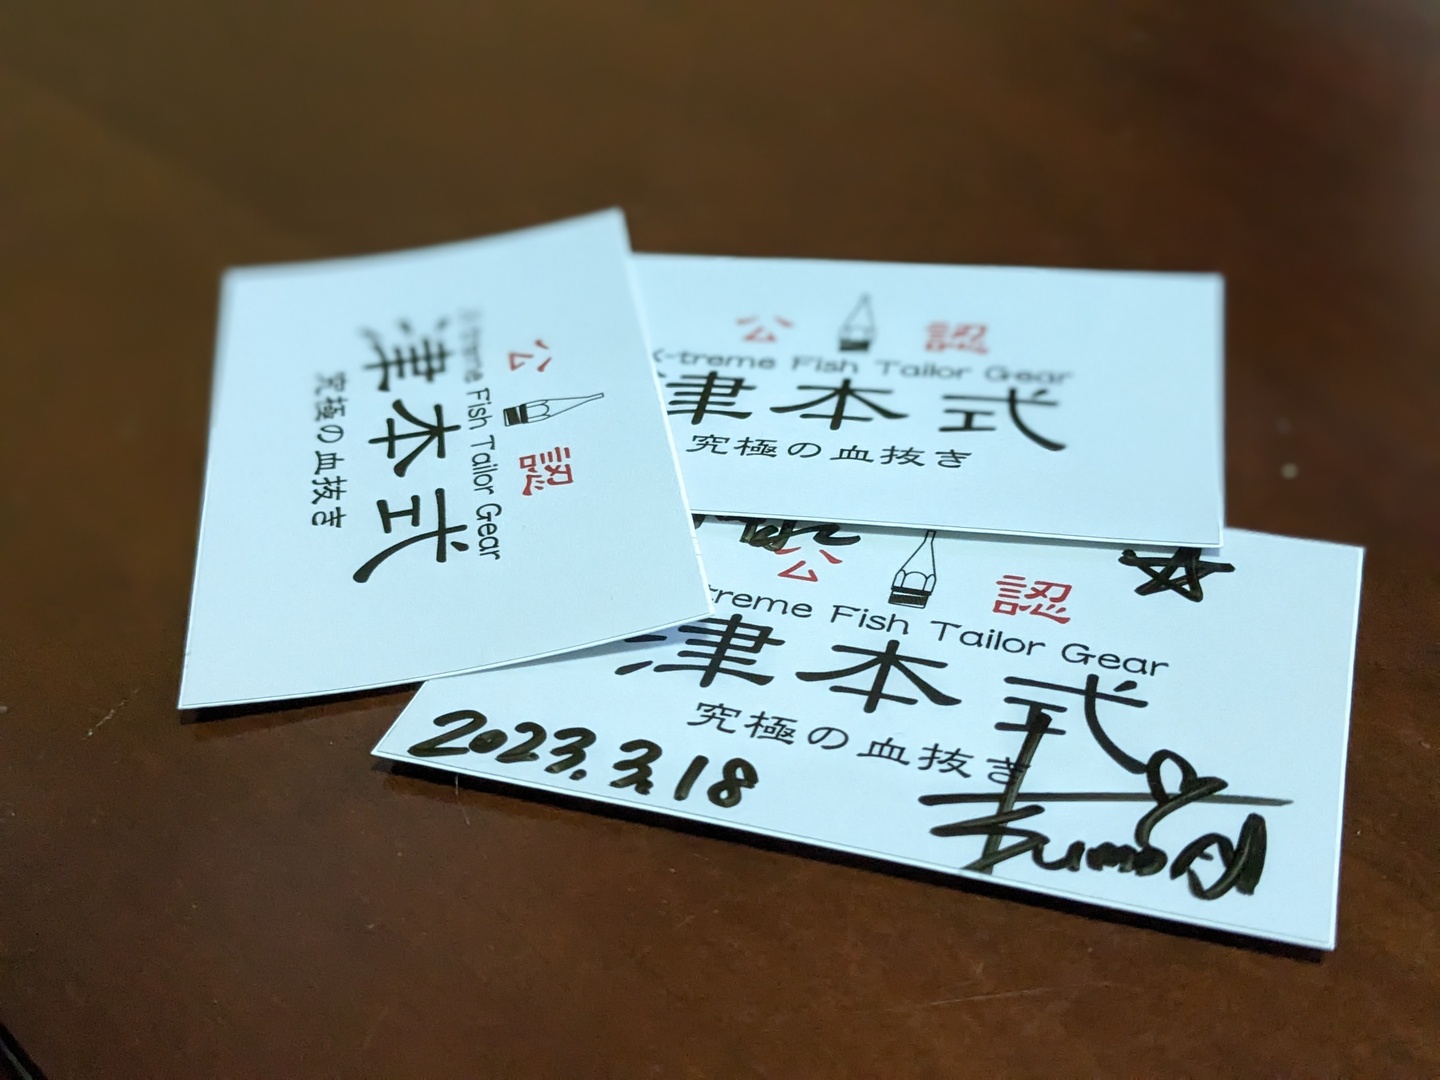 公 認
Fish Tailor Gear
津本式
究極の血抜き
公 認
X-treme Fish Tailor Gear
津本式
究極の血抜き
公 認
treme Fish Tailor Gear
津本式
究極の血抜き
2023.3.18